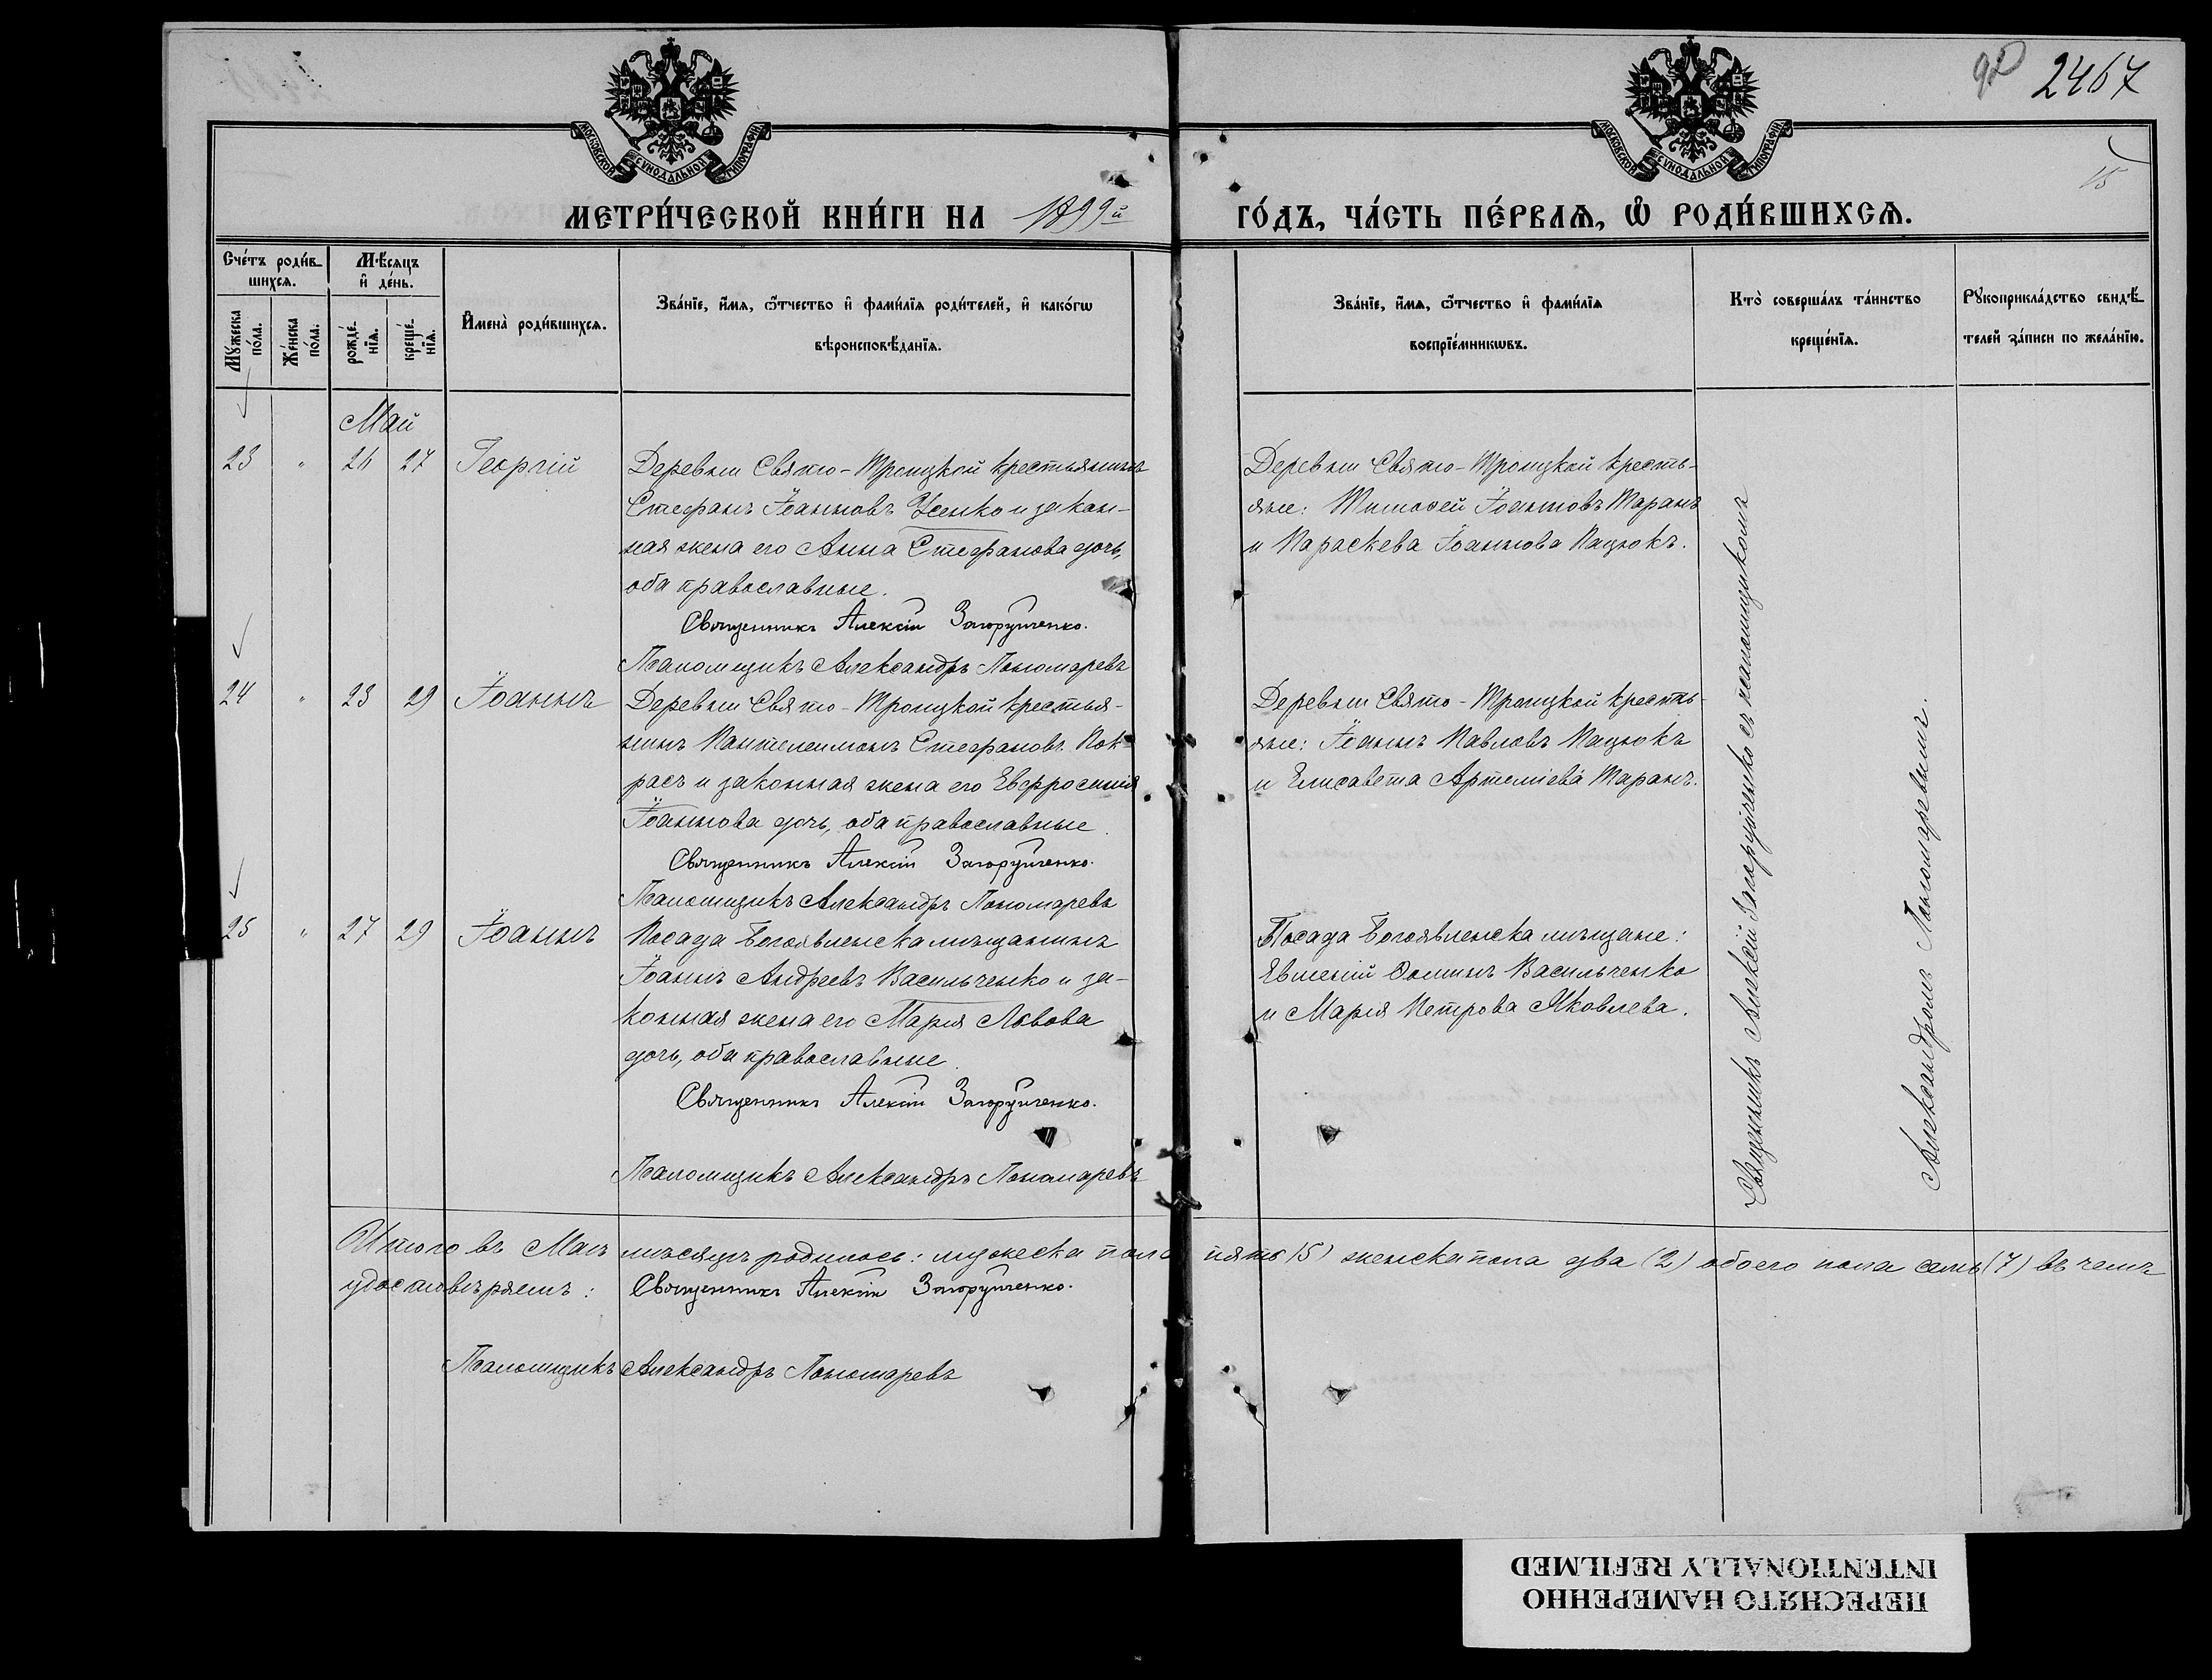 2467
15
МОСКОВСКОЙ СѴНОДАЛЬНОЙ ТИПОГРАФІИ.
МОСКОВСКОЙ СѴНОДАЛЬНОЙ ТИПОГРАФІИ.
МЕТРИ́ЧЕСКОЙ КНИ́ГИ НА 1899й
ГО́ДЪ, ЧА́СТЬ ПЕ́РВАѦ, Ѡ РОДИ́ВШИХСѦ.
Сче́тъ роди́вшихсѧ.
Мꙋ́жеска по́ла.
Же́нска по́ла.
Мѣ́сѧцъ и҆ де́нь.
рожде́нїѧ.
креще́нїѧ.
И҆мена̀ роди́вшихсѧ.
Зва́нїе, и҆́мѧ, ѻ҆́тчество и҆ фами́лїѧ роди́телей, и҆ како́гѡ
вѣроисповѣ́данїѧ.
Зва́нїе, и҆́мѧ, ѻ҆́тчество и҆ фами́лїѧ
воспрїе́мникѡвъ.
Кто̀ соверша́лъ та́инство
креще́нїѧ.
Рꙋкоприкла́дство свидѣ́-
телей за́писи по жела́нїю.
Май
23 " 26 27 Георгій
Деревни Свято-Троицкой крестьянинъ
Стефанъ Іоанновъ Усенко и закон-
ная жена его Анна Стефанова дочь,
оба православные.
Священникъ Алексій Загорульченко.
Псаломщикъ Александръ Пономаревъ
Деревни Свято-Троицкой кресть-
яне: Тимофей Іоанновъ Таранъ
и Параскева Іоаннова Пацюкъ.
24 " 23 29 Іоаннъ
Деревни Свято-Троицкой крестья-
нинъ Пантелеимонъ Стефановъ Пок-
расъ и законная жена его Евфросинія
Іоаннова дочь, оба православные.
Священникъ Алексій Загорульченко.
Псаломщикъ Александръ Пономаревъ
Деревни Свято-Троицкой кресть-
яне: Іоаннъ Павловъ Пацюкъ
и Елисавета Артеміева Таранъ.
25 " 27 29 Іоаннъ
Посада Богоявленска мѣщанинъ
Іоаннъ Андреевъ Васильченко и за-
конная жена его Марія Львова
дочь, оба православные.
Священникъ Алексій Загорульченко.
Псаломщикъ Александръ Пономаревъ
Посада Богоявленска мѣщане:
Евмений Ѳоминъ Васильченко
и Марія Петрова Яковлева.
Священникъ Алексій Загорульченко съ псаломщикомъ
Александромъ Пономаревымъ.
Итого въ Маѣ мѣсяцѣ родилось: мужеска пола пять (5) женска пола два (2) обоего пола семь (7) въ чемъ
удостовѣряемъ: Священникъ Алексій Загорульченко.
Псаломщикъ Александръ Пономаревъ
ПЕРЕСНЯТО НАМЕРЕННО
INTENTIONALLY REFILMED